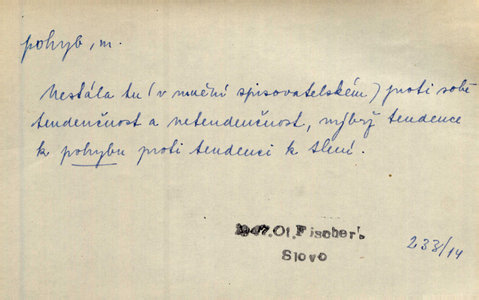 pohyb, m.
Nestála tu (v snažení spisovatelském) proti sobě
tendenčnost a netendenčnost, nýbrž tendence
k pohybu proti tendenci k tlení.
1947. Ot. Fischer:
Slovo
233/14